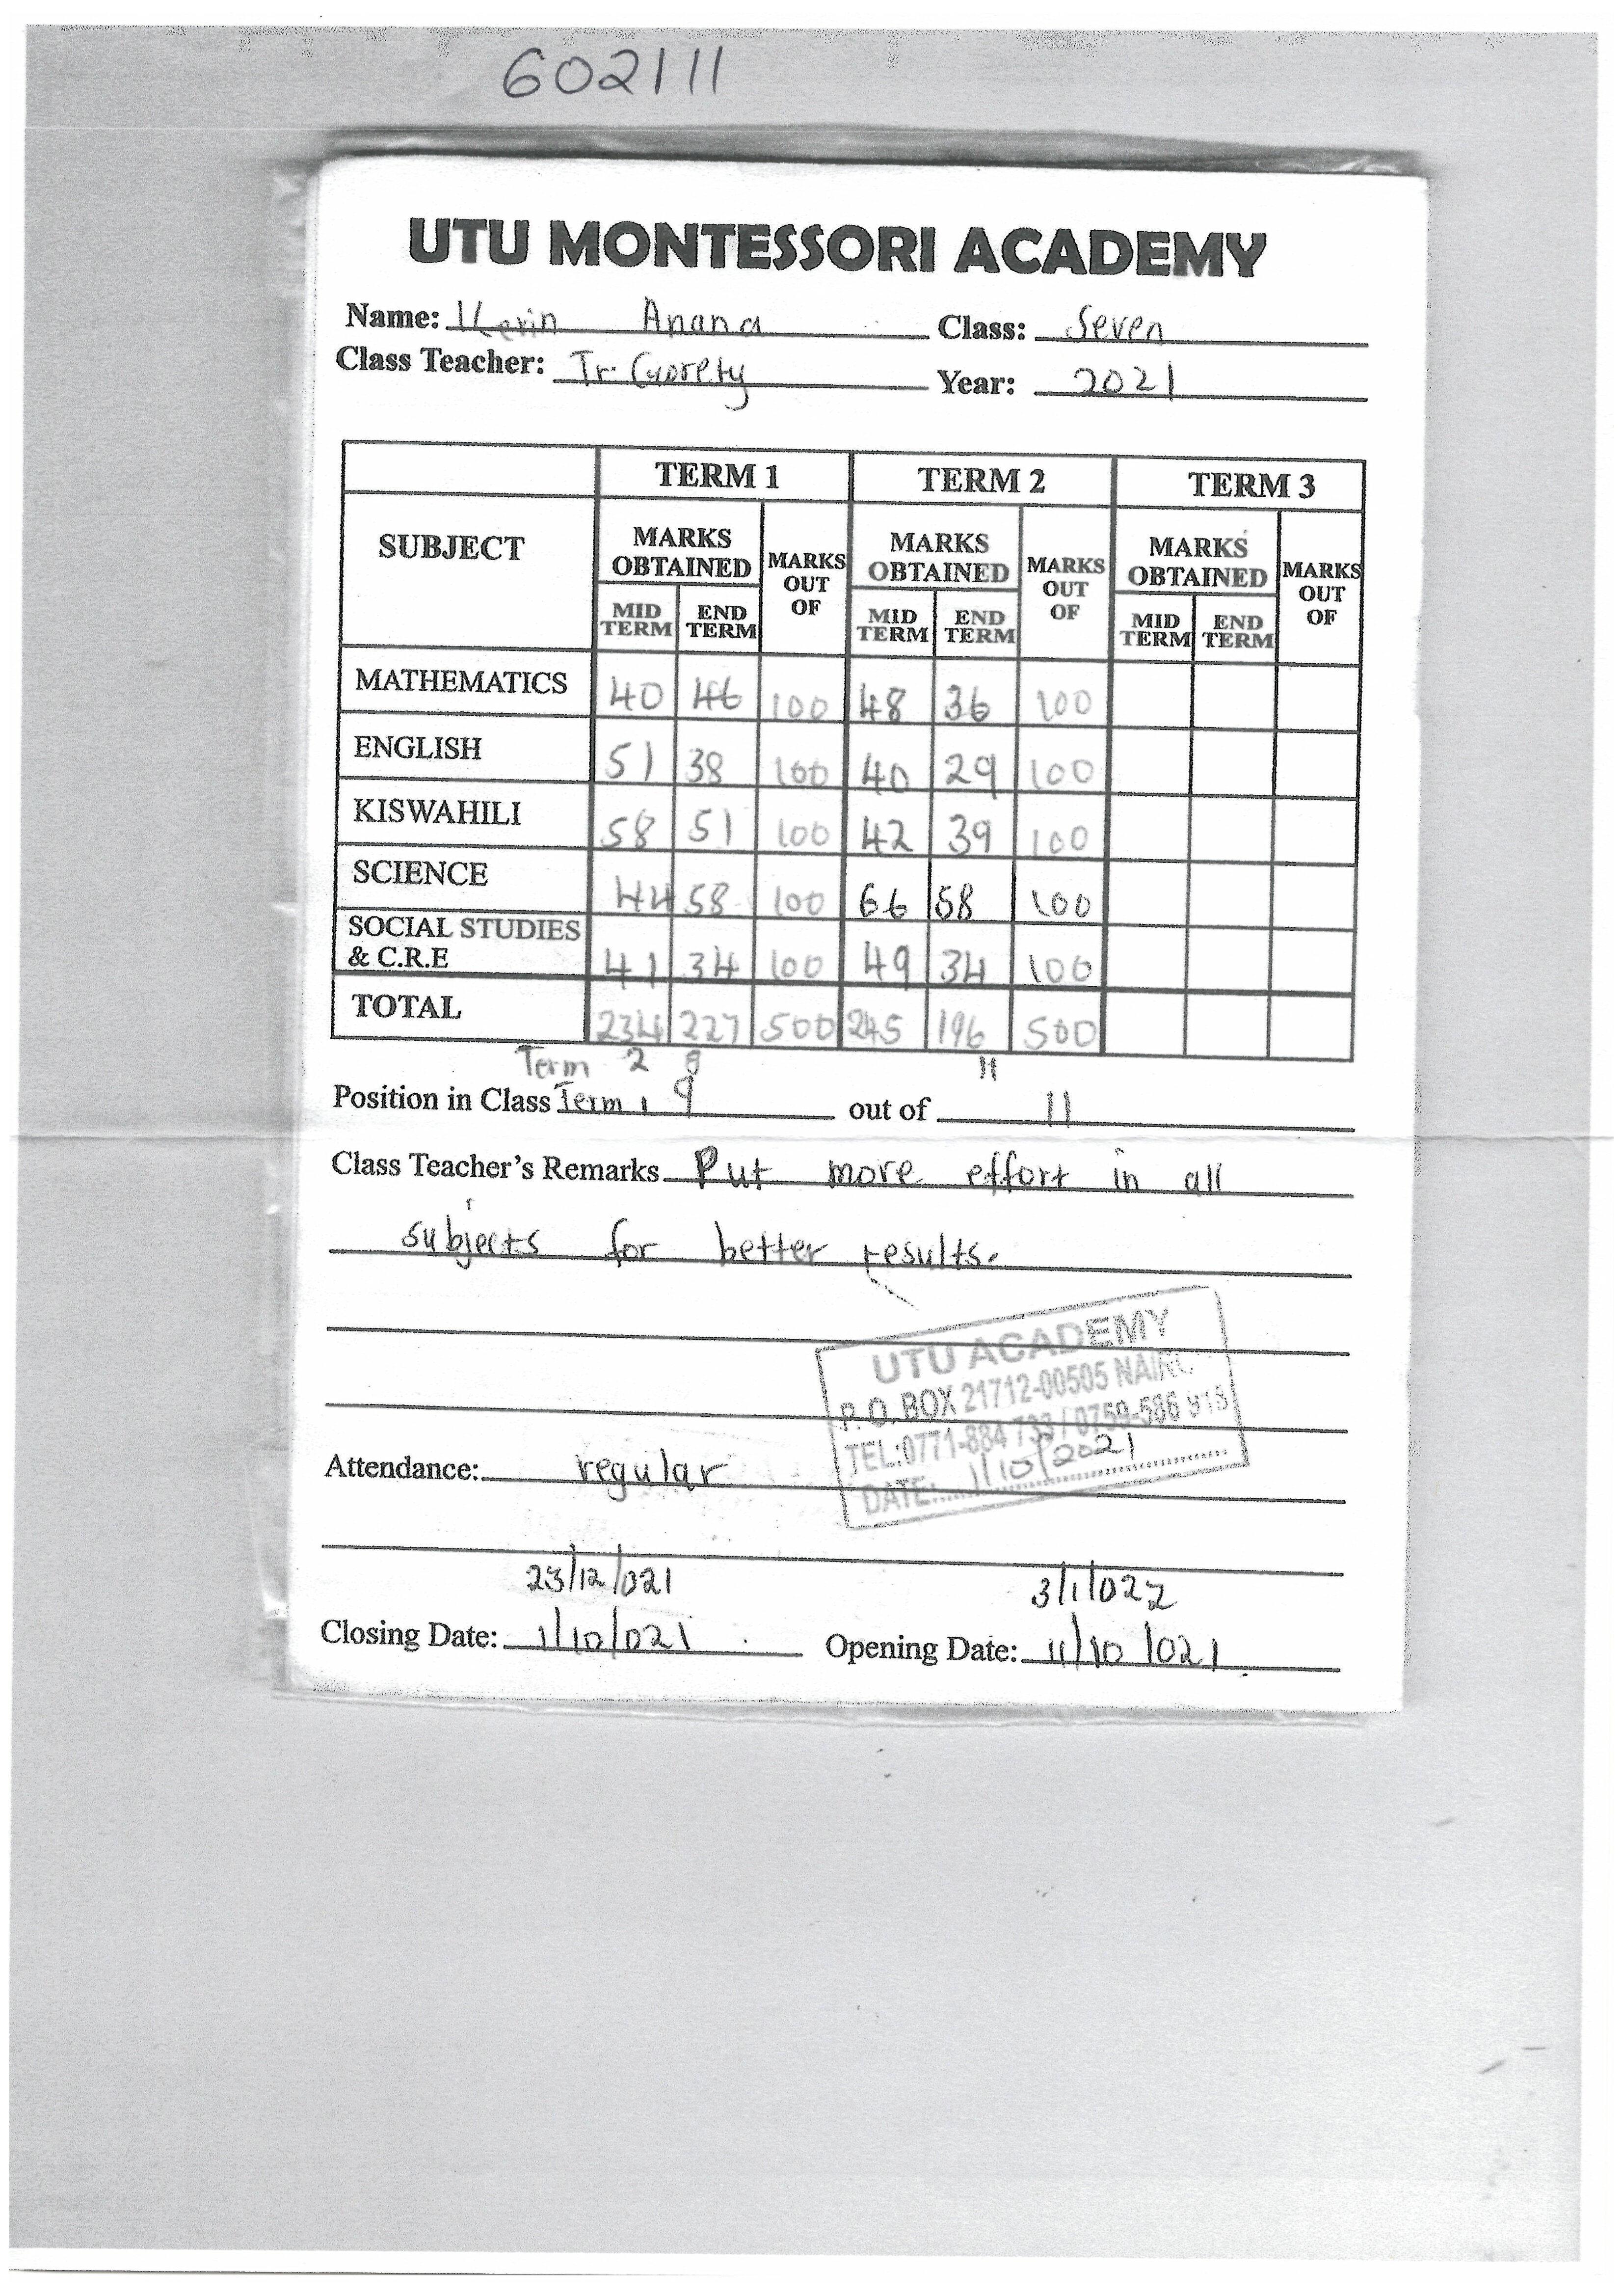 602111
UTU MONTESSORI ACADEMY
Name: Kevin Anana Class: Seven
Class Teacher: Tr. Gorety Year: 2021
TERM 1 TERM 2 TERM 3
SUBJECT MARKS OBTAINED MARKS OUT OF MARKS OBTAINED MARKS OUT OF MARKS OBTAINED MARKS OUT OF
MID TERM END TERM MID TERM END TERM MID TERM END TERM
MATHEMATICS 40 46 100 48 36 100
ENGLISH 51 38 100 40 29 100
KISWAHILI 58 51 100 42 39 100
SCIENCE 44 58 100 66 58 100
SOCIAL STUDIES & C.R.E 41 34 100 49 34 100
TOTAL 234 227 500 245 196 500
Term 2 8 11
Position in Class Term 1 9 out of 11
Class Teacher's Remarks Put more effort in all
subjects for better results.
UTU ACADEMY
P.O. BOX 21712-00505
TEL:0771-884 733 / 0759-586 918
DATE: 1/10/2021
Attendance: regular
23/12/021 3/1/022
Closing Date: 1/10/021 Opening Date: 11/10/021